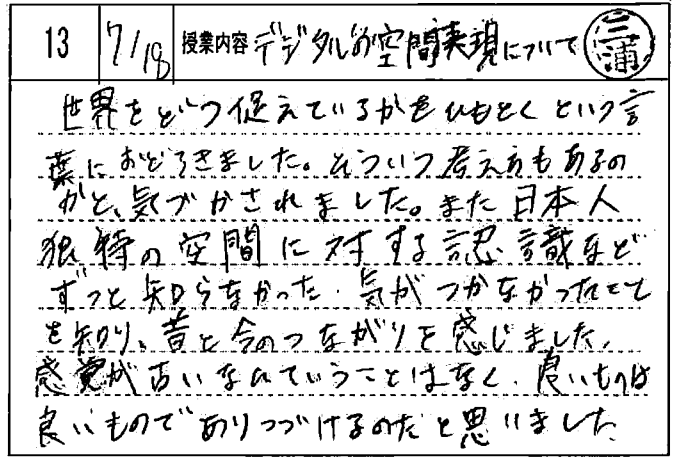 13 7/18 授業内容 デジタル的空間表現について 三浦
世界をどう捉えているかをひもとくという言
葉におどろきました。そういう考え方もあるの
かと、気づかされました。また日本人
独特の空間に対する認識など
ずっと知らなかった、気がつかなかったこと
を知り、昔と今のつながりを感じました。
感覚が古いなんていうことはなく、良いものは
良いものでありつづけるのだと思いました